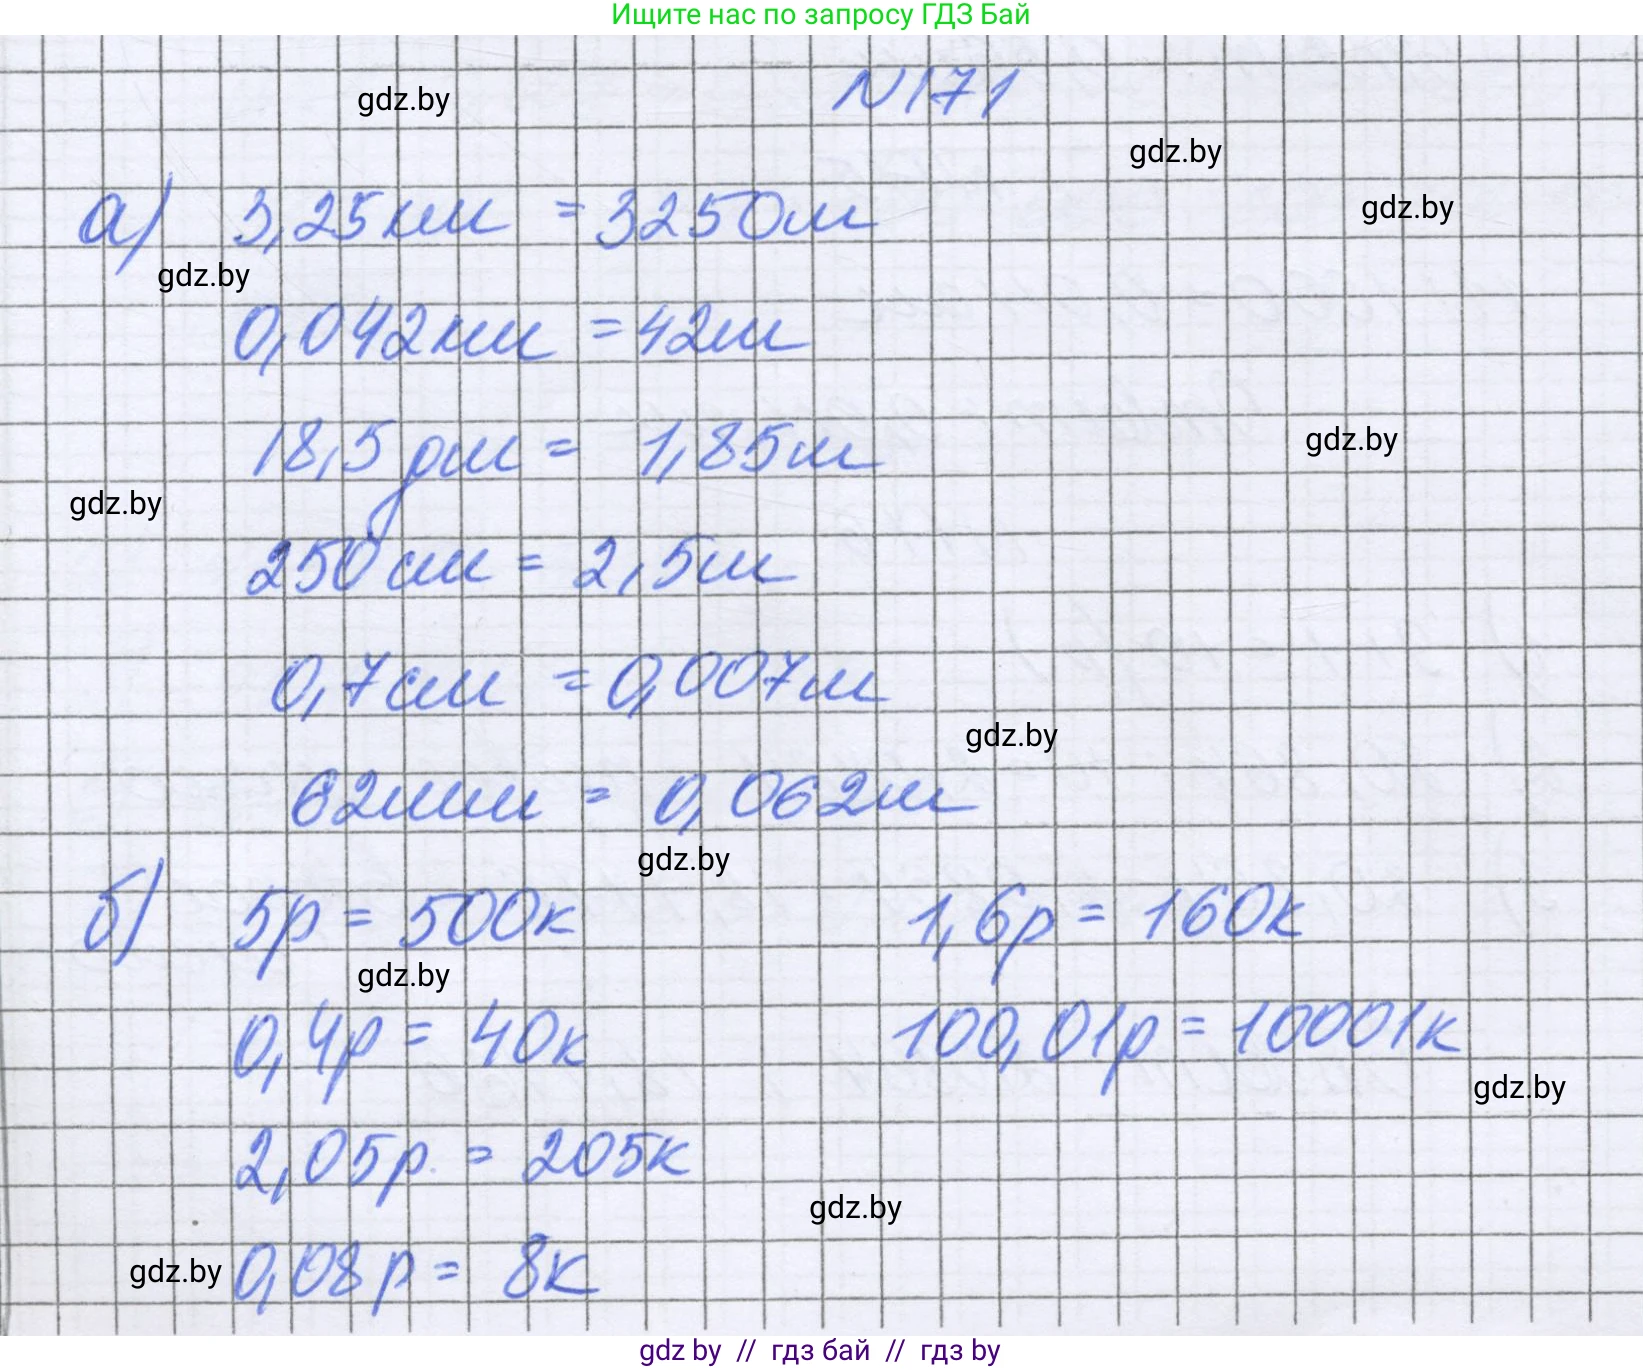 Ищите нас по запросу ГДЗ Бай
N171
gdz.by
gdz.by
а) 3,25км = 3250м
gdz.by
gdz.by
0,042км = 42м
18,5дм = 1,85м
gdz.by
gdz.by
250см = 2,5м
0,7см = 0,007м
gdz.by
62мм = 0,062м
gdz.by
б) 5р = 500к 1,6р = 160к
gdz.by
0,4р = 40к 100,01р = 10001к
gdz.by
2,05р. = 205к
gdz.by
gdz.by 0,08р = 8к
gdz by // гдз бай // гдз by